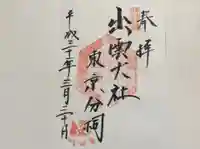 奉拝
出雲大社
東京分祠
平成二十年三月二十日